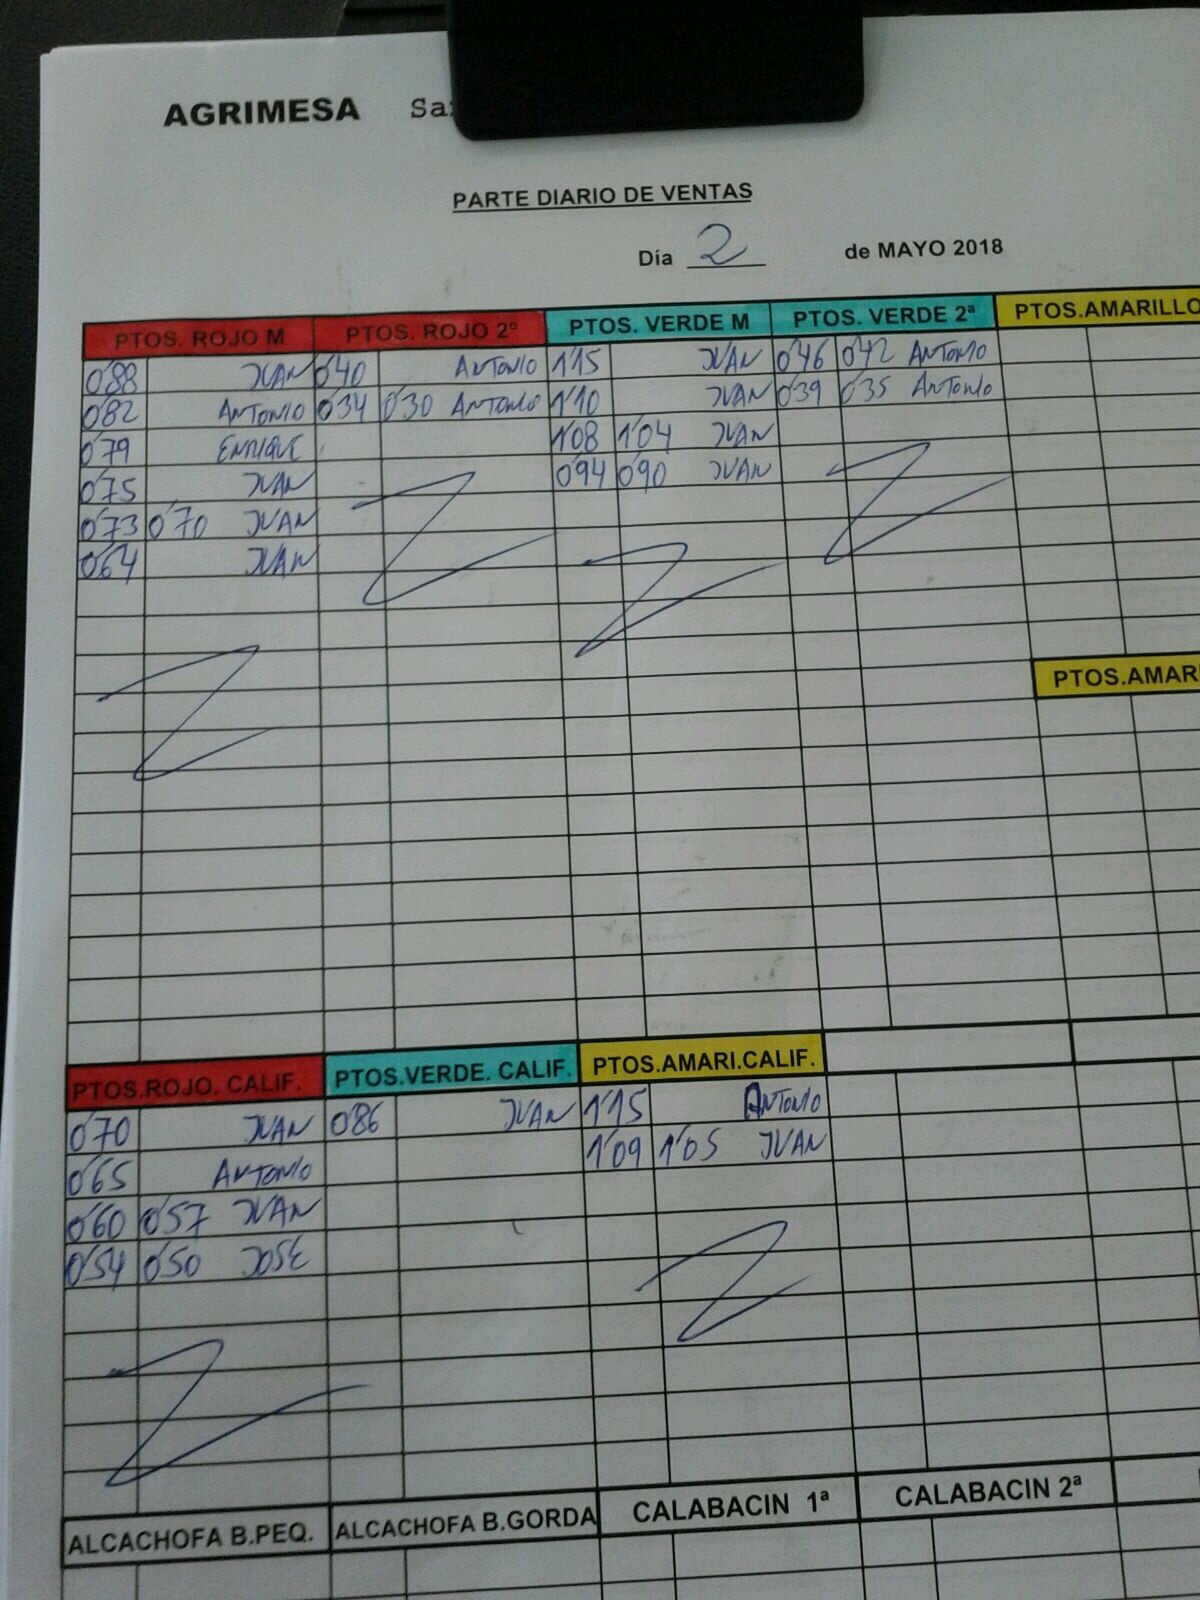 AGRIMESA
PARTE DIARIO DE VENTAS
Día 2 de MAYO 2018
PTOS. ROJO M PTOS. ROJO 2º PTOS. VERDE M PTOS. VERDE 2ª PTOS.AMARILLO
0'88 JUAN 0'40 ANTONIO 1'15 JUAN 0'46 0'42 ANTONIO
0'82 ANTONIO 0'34 0'30 ANTONIO 1'10 JUAN 0'39 0'35 ANTONIO
0'79 ENRIQUE 1'08 1'04 JUAN
0'75 JUAN 0'94 0'90 JUAN
0'73 0'70 JUAN
0'64 JUAN
PTOS.AMARI
PTOS.ROJO. CALIF. PTOS.VERDE. CALIF. PTOS.AMARI.CALIF.
0'70 JUAN 0'86 JUAN 1'15 ANTONIO
0'65 ANTONIO 1'09 1'05 JUAN
0'60 0'57 JUAN
0'54 0'50 JOSE
ALCACHOFA B.PEQ. ALCACHOFA B.GORDA CALABACIN 1ª CALABACIN 2ª